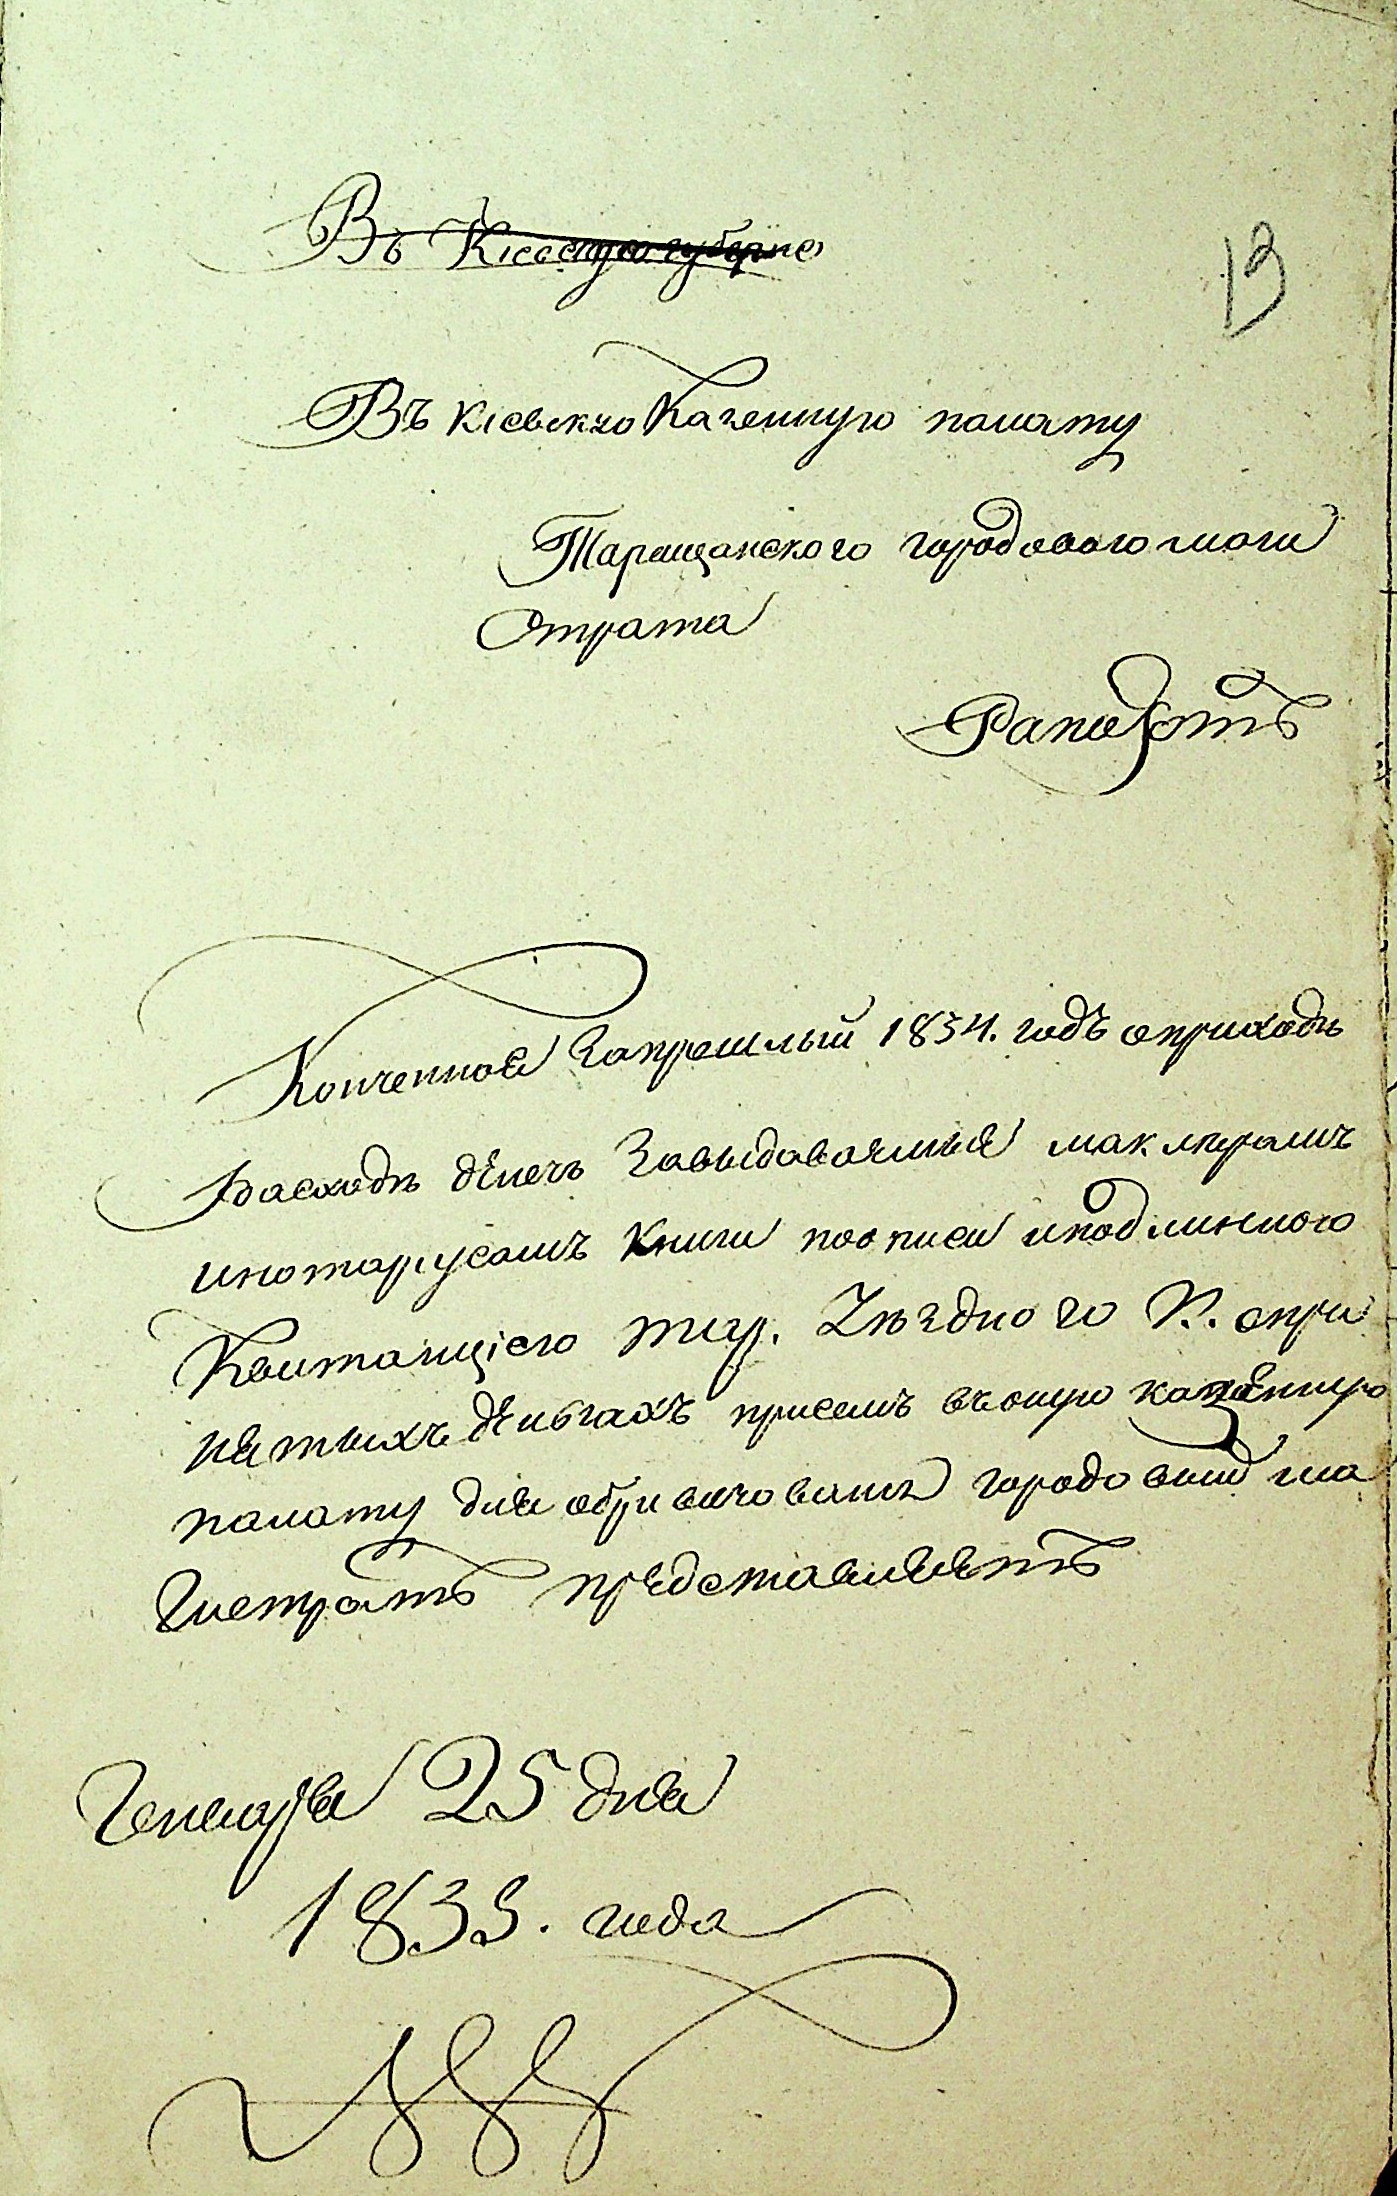 Въ Кіевскую губерне
13
Въ кіевскую Казенную палату
Таращанского городового маги
Страта
Рапортъ
Конченное Запрошлый 1834. годъ оприходѣ
Расходѣ денегъ Завыдаваемые маклерамъ
инотарусамъ Книги поописи иподлинною
Квитанціею тар. Уѣздного К. опри
нятыхъ деньгахъ приемъ въоную казенную
палату для обревизованія городовый ма
гистратъ предъставляетъ
Генваря 25 дня
1835. года